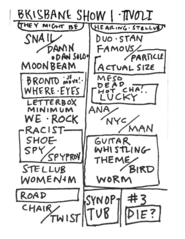 BRISBANE SHOW 1 · TIVOLI
THEY MIGHT BE
SNAIL/
DAMN
+ DAN SOLO
MOONBEAM
BRONTO
WHERE · EYES
LETTERBOX
MINIMUM
WE · ROCK
RACIST
SHOE
SPY/
SPYPROV
STELLUB
WOMEN+M
ROAD
CHAIR/
TWIST
HEARING · STELLUB
DUO · STAN
FAMOUS/
PARTICLE
ACTUAL SIZE
MESO
DEAD
HOT CHA!
LUCKY
ANA/
NYC/
MAN
GUITAR
WHISTLING
THEME/
BIRD
WORM
SYNOP
TUB
#3
DIE?